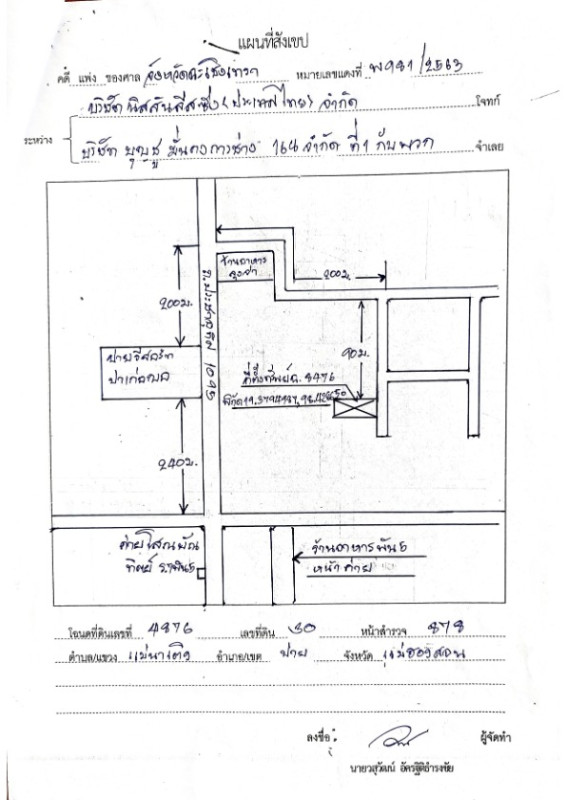 แผนที่สังเขป
คดี แพ่ง ของศาล จังหวัดฉะเชิงเทรา หมายเลขแดงที่ พ981/2563
บริษัท นิสสันลีสซิ่ง (ประเทศไทย) จำกัด โจทก์
ระหว่าง
บริษัท บุญชู มั่นคงการช่าง 164 จำกัด ที่ 1 กับพวก จำเลย
ร้านอาหาร
200ม.
200ม.
ถ.ประชาอุทิศ 1095
90ม.
ปาย
ที่ตั้งทรัพย์ ฉ. 4876
240ม.
ค่าย
ร้านอาหาร
หน้าค่าย
โฉนดที่ดินเลขที่ 4876 เลขที่ดิน 30 หน้าสำรวจ 878
ตำบล/แขวง แม่นาเติง อำเภอ/เขต ปาย จังหวัด แม่ฮ่องสอน
ลงชื่อ ผู้จัดทำ
นายวสุวัฒน์ อัครฐิติธำรงชัย